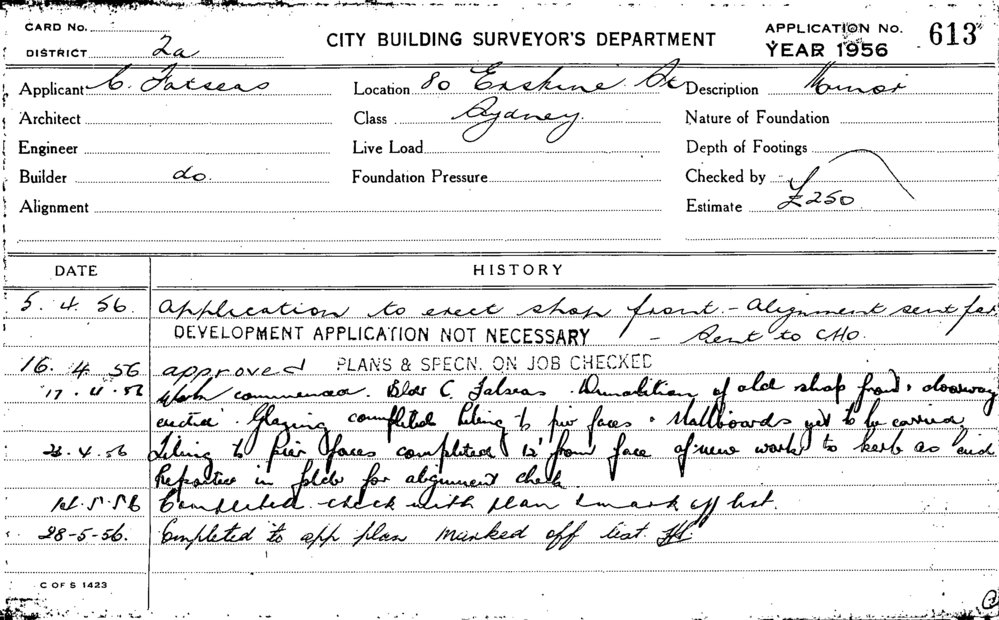 CARD No.
DISTRICT 2a
CITY BUILDING SURVEYOR'S DEPARTMENT
APPLICATION No. 613
YEAR 1956
Applicant C. Fatseas Location 80 Erskine St Description Minor
Architect Class Sydney Nature of Foundation
Engineer Live Load Depth of Footings
Builder do. Foundation Pressure Checked by
Alignment Estimate £250
DATE HISTORY
5. 4. 56. Application to erect shop front - Alignment sent for
DEVELOPMENT APPLICATION NOT NECESSARY - Sent to CHO.
16. 4. 56 approved PLANS & SPECN. ON JOB CHECKED
17. 4. 56 Work commenced. Bldr C. Fatseas. Demolition of old shop front & doorway
erected. Glazing completed tiling to pier faces & stallboards yet to be carried
4. 56 Tiling to pier faces completed 12' from face of new work to kerb as
in for alignment check
1st. 5. 56 Completed check with plan & mark off list.
28-5-56. Completed to app plan marked off list.
C OF S 1423